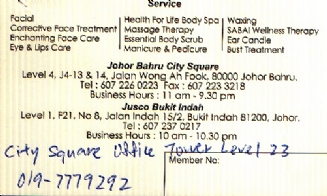 Service
Facial
Corrective Face Treatment
Enchanting Face Care
Eye & Lips Care
Health For Life Body Spa
Massage Therapy
Essential Body Scrub
Manicure & Pedicure
Waxing
SABAI Wellness Therapy
Ear Candle
Bust Treatment
Johor Bahru City Square
Level 4, J4-13 & 14, Jalan Wong Ah Fook, 80000 Johor Bahru.
Tel : 607 226 0223 Fax : 607 223 3218
Business Hours : 11 am - 9.30 pm
Jusco Bukit Indah
Level 1, F21, No 8, Jalan Indah 15/2, Bukit Indah 81200, Johor.
Tel : 607 237 0217
Business Hours : 10 am - 10.30 pm
City Square Office Tower Level 23
Member No:
019-7779292